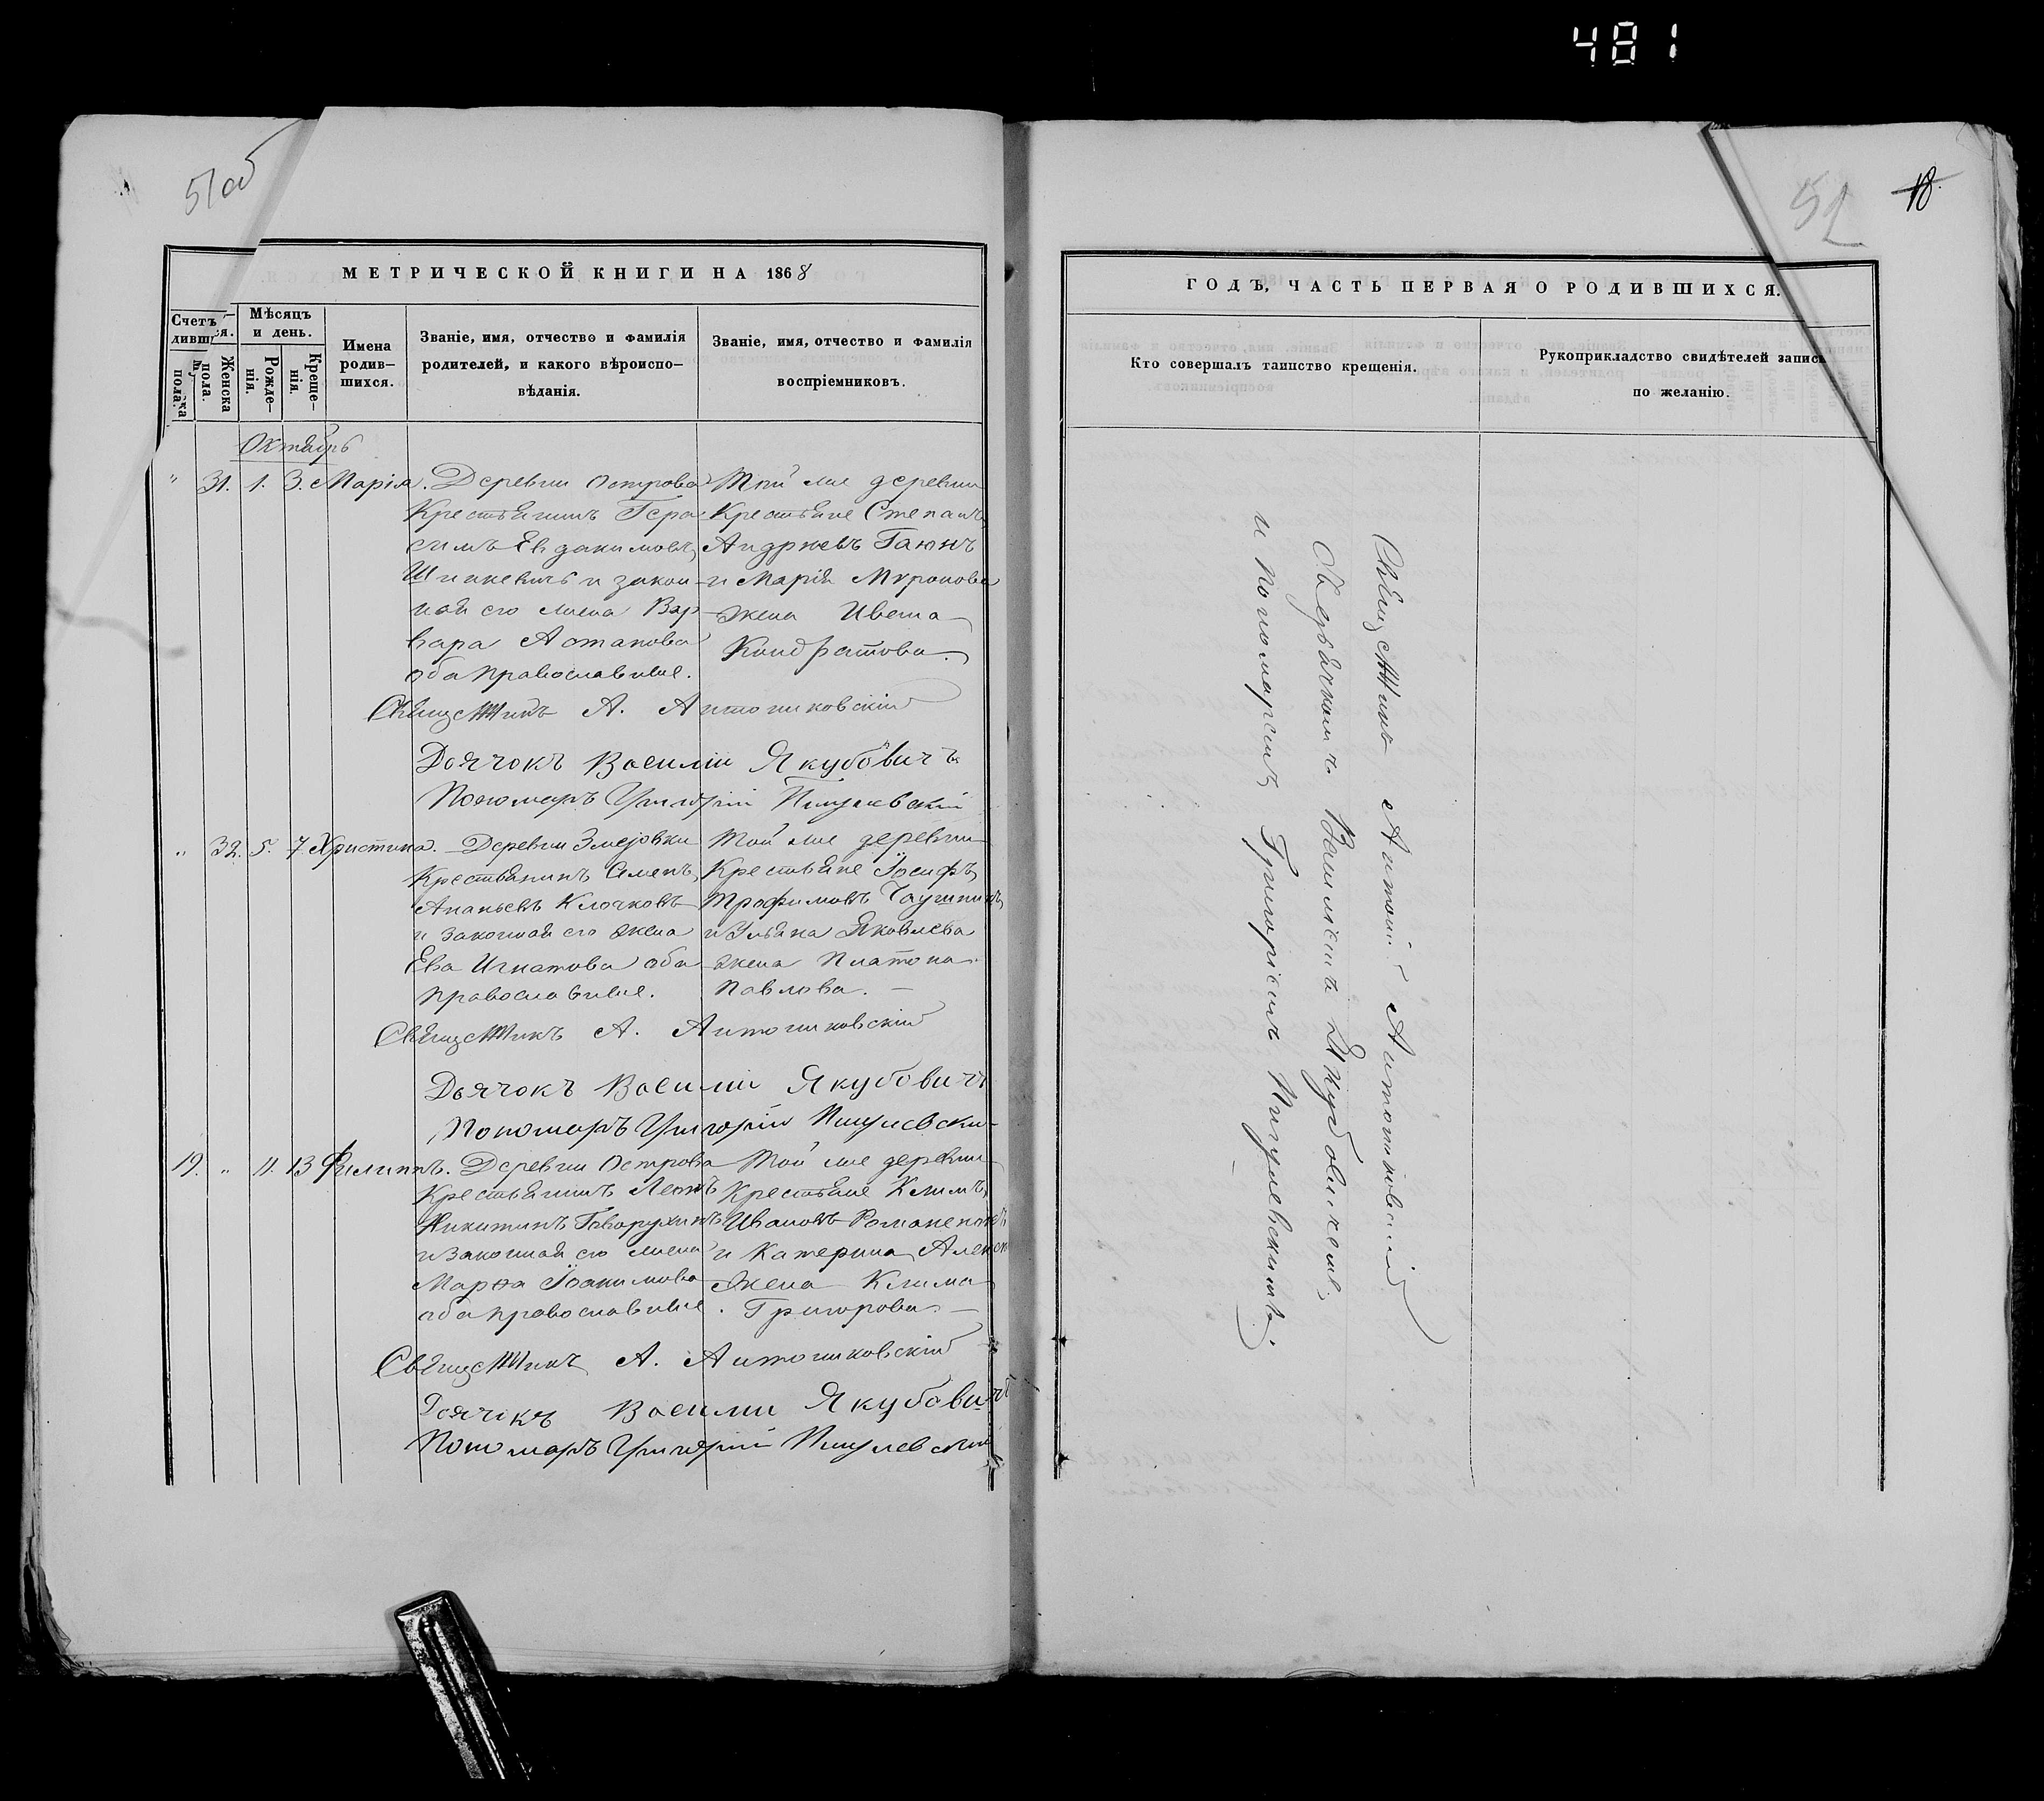 481
51об
МЕТРИЧЕСКОЙ КНИГИ НА 1868
Счетъ
дивш ся.
Мѣсяцъ
и день.
Женска
пола.
Рожде-
нія.
Креще-
нія.
Имена
родив-
шихся.
Званіе, имя, отчество и фамилія
родителей, и какого вѣроиспо-
вѣданія.
Званіе, имя, отчество и фамилія
воспріемниковъ.
Октябрь
" 31. 1. 3. Марія. Деревни Острова Той же деревни
Крестьянинъ Гера- Крестьяне Степанъ
симъ Евдакимовъ Андреевъ Гаюнъ
Шишкевичъ и закон- и Марія Миронова
ная его жена Вар- жена Ивана
вара Астапова Кондратова.
оба православные.
Священникъ А. Антониковскій
Дьячокъ Василій Якубовичъ
Пономаръ Григорій Пигулевскій
" 32. 5. 7. Христина. Деревни Змеювки Той же деревни
Крестьянинъ Семенъ Крестьяне Іосифъ
Ананьевъ Клочковъ Трофимовъ
и законная его жена и Ульяна Яковлева
Ева Игнатова оба жена Платона
православные. Павлова. —
Священникъ А. Антониковскій
Дьячокъ Василій Якубовичъ
Пономаръ Григорій Пигулевскій
19. " 11. 13 Филиппъ. Деревни Острова Той же деревни
Крестьянинъ Леонъ Крестьяне Климъ
Никитинъ Говорухинъ Ивановъ Романенокъ
и законная его жена и Катерина
Марѳа Іоакимова жена Клима
оба православные. Григорова —
Священникъ А. Антониковскій
Дьячокъ Василій Якубовичъ
Пономаръ Григорій Пигулевскій
52 18.
ГОДЪ, ЧАСТЬ ПЕРВАЯ О РОДИВШИХСЯ.
Кто совершалъ таинство крещенія.
Рукоприкладство свидѣтелей записи
по желанію.
Священникъ Антоній Антониковскій
съ дьячкомъ Василіемъ Якубовичемъ
и пономаремъ Григоріемъ Пигулевскимъ.